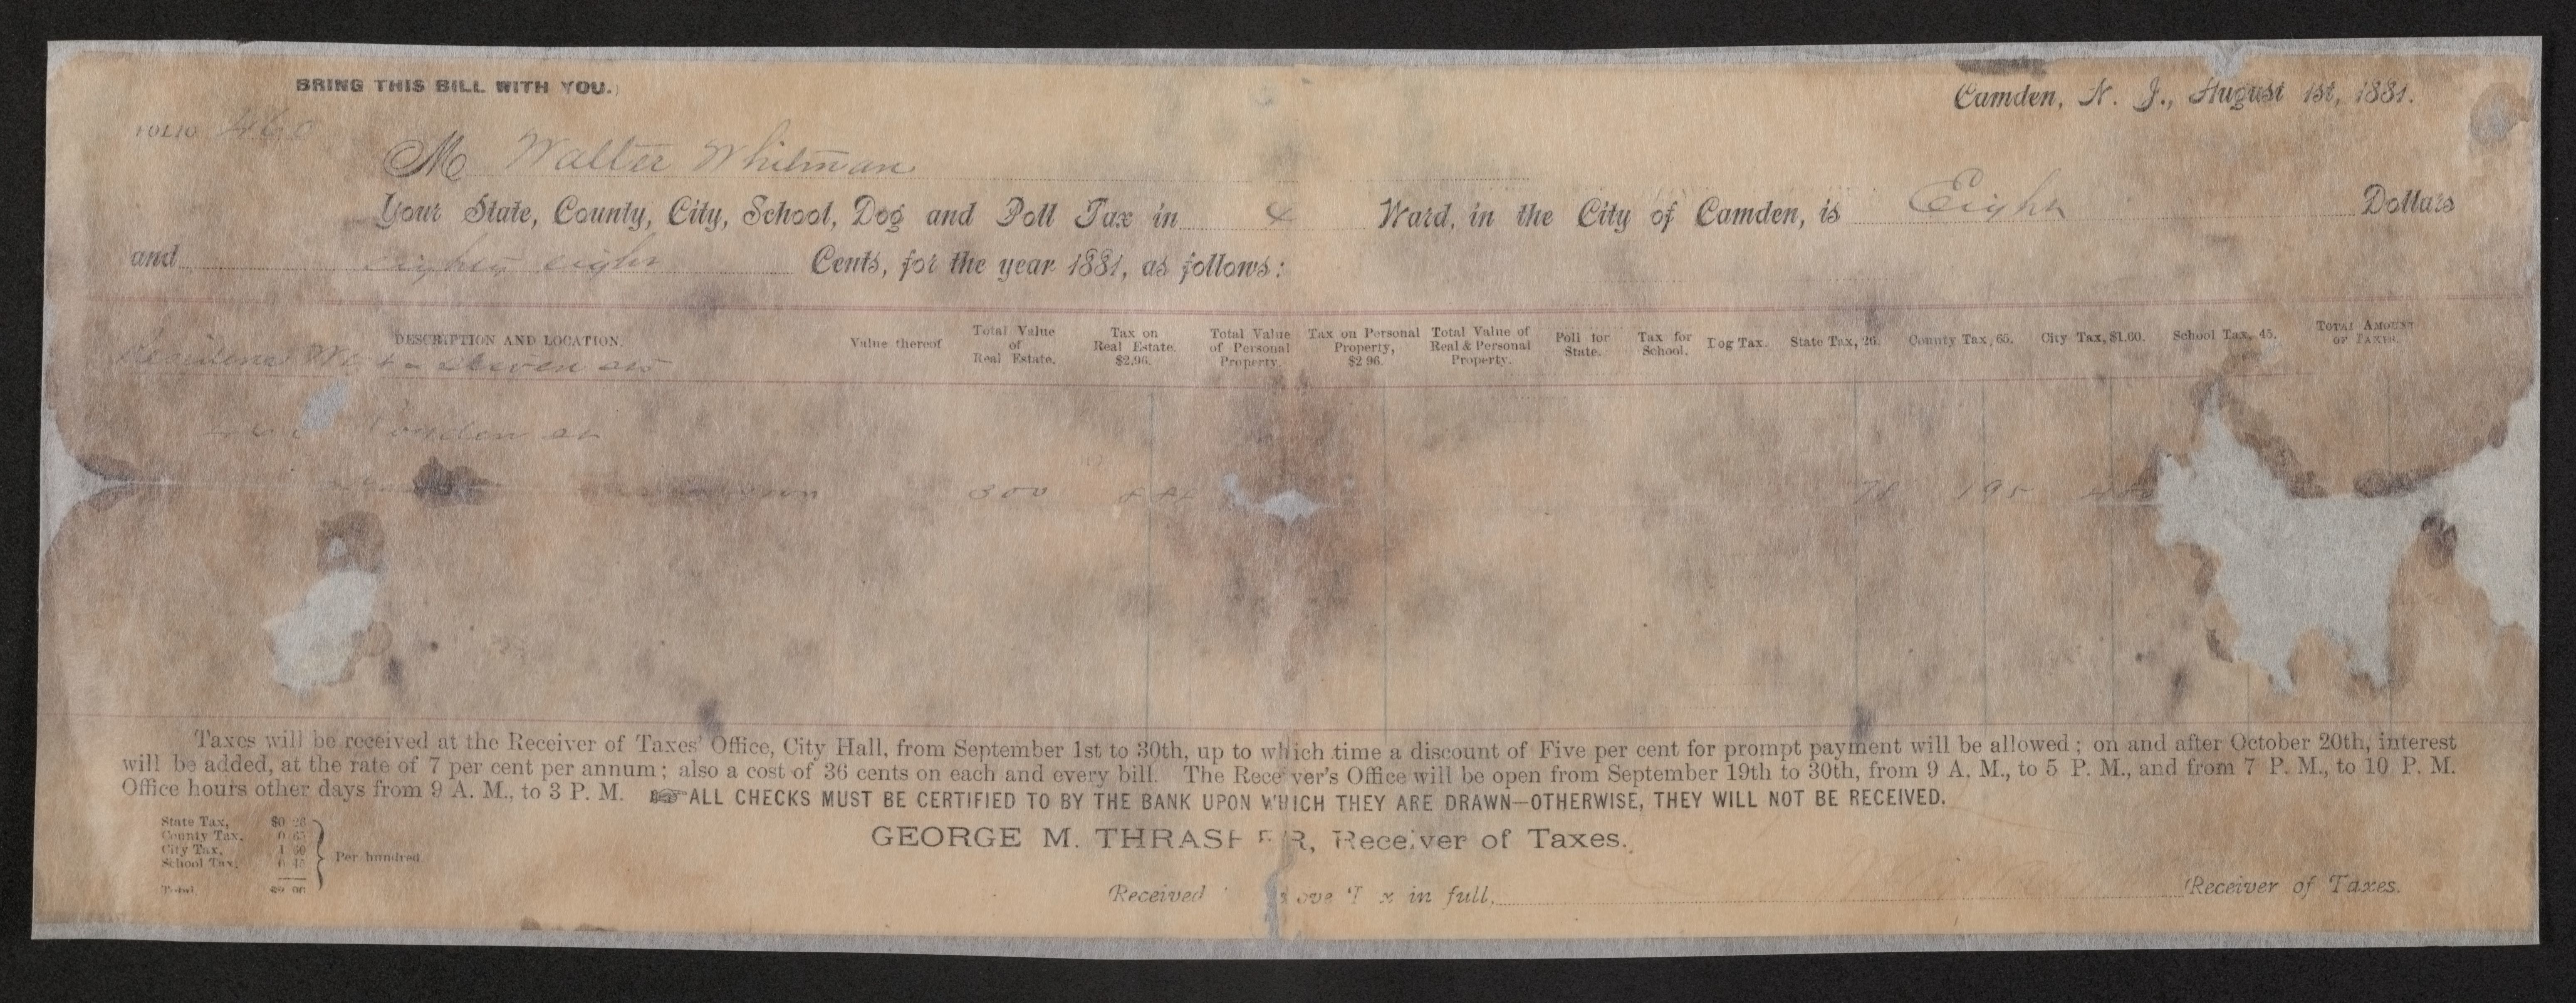 BRING THIS BILL WITH YOU.
Camden, N. J., August 1st, 1881.
FOLIO 460
M Walter Whitman
Your State, County, City, School, Dog and Poll Tax in 4 Ward, in the City of Camden, is Eight Dollars
and eighty eight Cents, for the year 1881, as follows:
DESCRIPTION AND LOCATION. Value thereof Total Value of Real Estate. Tax on Real Estate. $2.96. Total Value of Personal Property. Tax on Personal Property, $2 96. Total Value of Real & Personal Property. Poll for State. Tax for School. Dog Tax. State Tax, 26. County Tax, 65. City Tax, $1.60. School Tax, 45. TOTAL AMOUNT OF TAXES.
300 78 195
Taxes will be received at the Receiver of Taxes' Office, City Hall, from September 1st to 30th, up to which time a discount of Five per cent for prompt payment will be allowed; on and after October 20th, interest
will be added, at the rate of 7 per cent per annum; also a cost of 36 cents on each and every bill. The Rece ver's Office will be open from September 19th to 30th, from 9 A. M., to 5 P. M., and from 7 P. M., to 10 P. M.
Office hours other days from 9 A. M., to 3 P. M. ☞ ALL CHECKS MUST BE CERTIFIED TO BY THE BANK UPON WHICH THEY ARE DRAWN—OTHERWISE, THEY WILL NOT BE RECEIVED.
State Tax, $0 26
County Tax, 0 65
City Tax, 1 60
School Tax, 0 45
Per hundred
Total $2 96
GEORGE M. THRASHER, Receiver of Taxes.
Received ove T x in full, Receiver of Taxes.